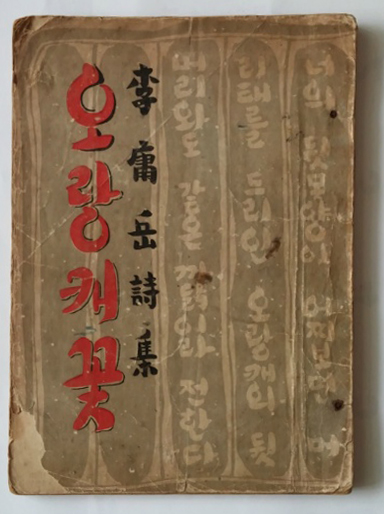 너의 뒷모양이 어찌보면 머
리태를 드리인 오랑캐의 뒷
머리와도 같은 까닭이라 전한다
李庸岳詩集
오랑캐꽃